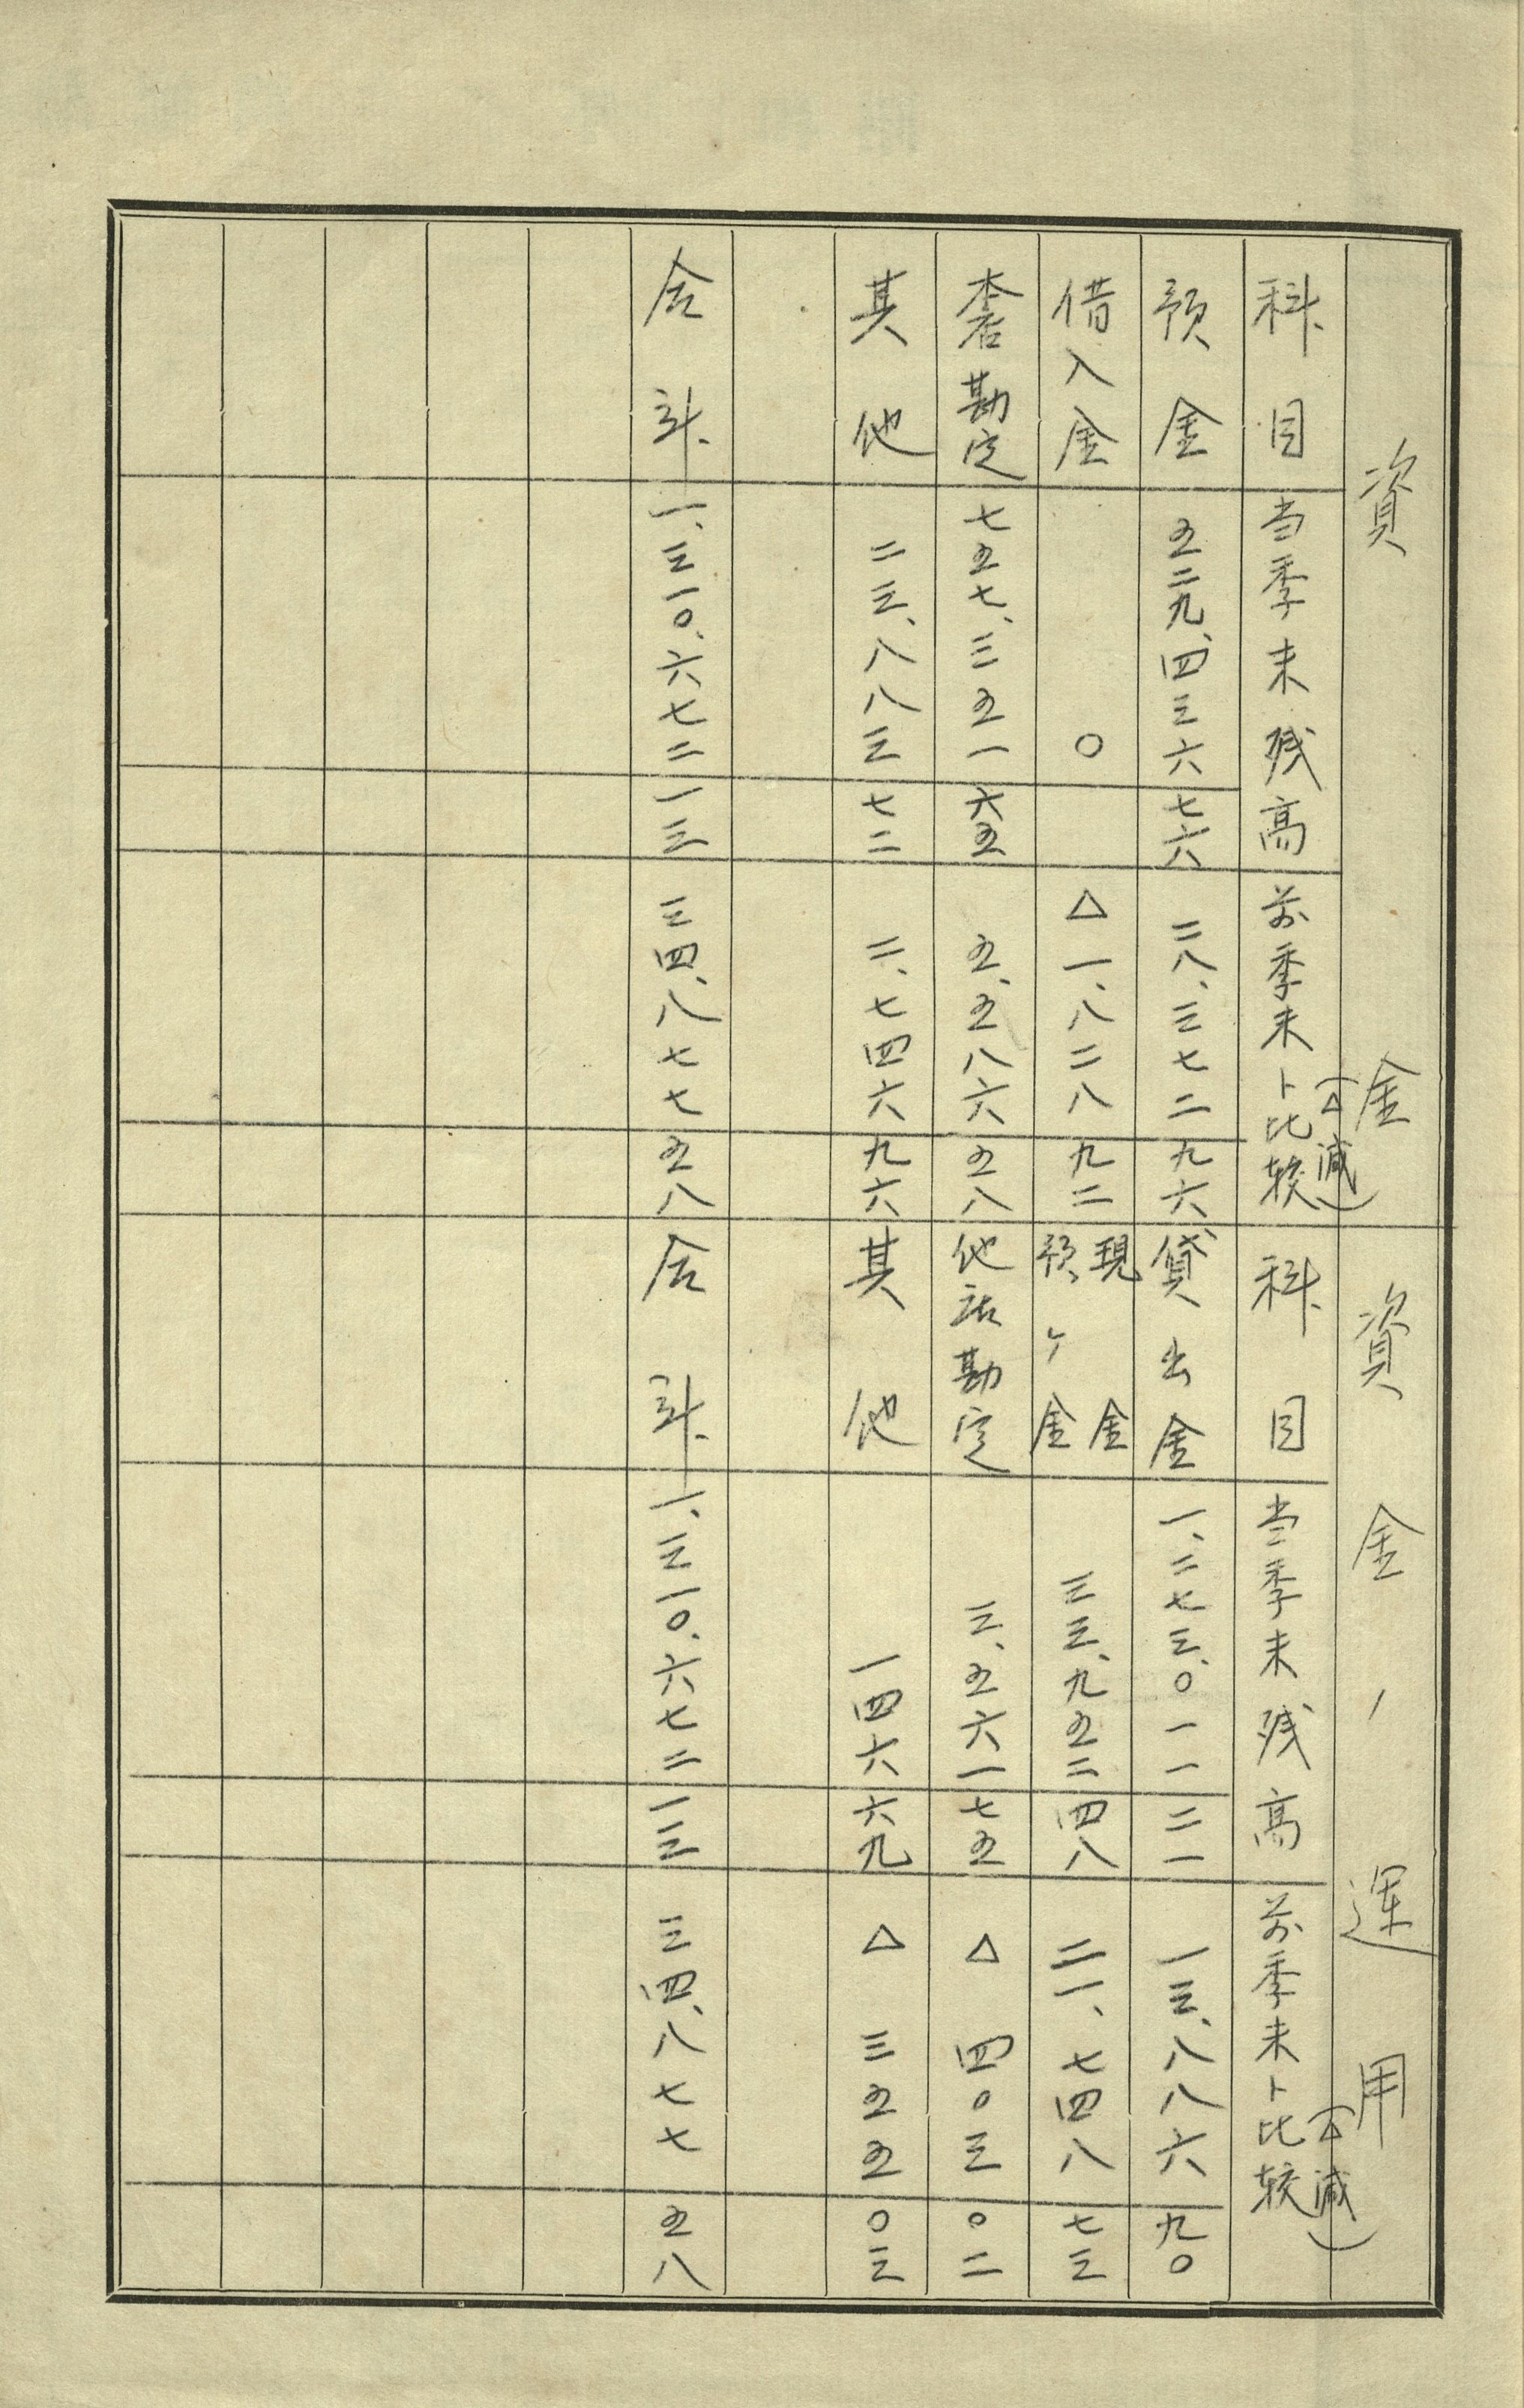 資金 資金ノ運用
科目 当季末残高 前季末ト比較(△減) 科目 当季末残高 前季末ト比較(△減)
預金 五二九、四三六 七六 二八、三七二 九六 貸出金 一、二七三、〇一一 二一 一三、八八六 九〇
借入金 〇 △一、八二八 九二 現金 預ケ金 三三、九五二 四八 二一、七四八 七三
本店勘定 七五七、三五一 六五 五、五八六 五八 他店勘定 三、五六一 七五 △四〇三 〇二
其他 二三、八八三 七二 二、七四六 九六 其他 一四六 六九 △三五五 〇三
合計 一、三一〇、六七二 一三 三四、八七七 五八 合計 一、三一〇、六七二 一三 三四、八七七 五八